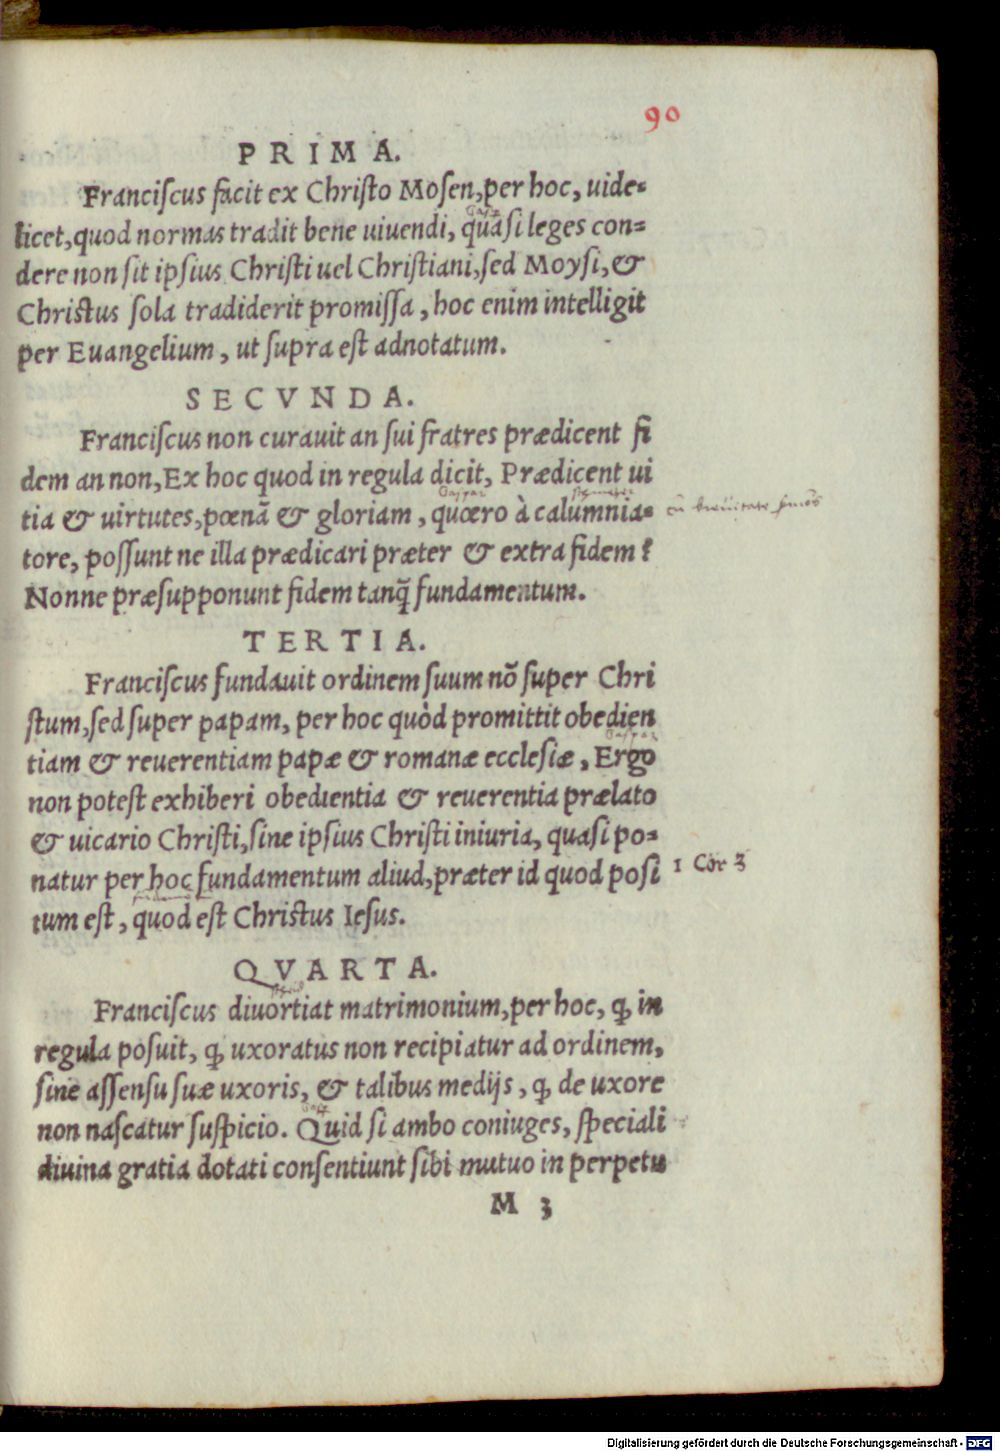 90
PRIMA.
Franciſcus facit ex Chriſto Moſen, per hoc, uide-
licet, quod normas tradit bene uiuendi, quaſi leges con-
dere non ſit ipſius Chriſti uel Chriſtiani, ſed Moyſi, &
Chriſtus ſola tradiderit promiſſa, hoc enim intelligit
per Euangelium, ut ſupra eſt adnotatum.
SECVNDA.
Franciſcus non curauit an ſui fratres prædicent fi
dem an non, Ex hoc quod in regula dicit, Prædicent ui
tia & uirtutes, pœnā & gloriam, quæro à calumnia-
tore, poſſunt ne illa prædicari præter & extra fidem?
Nonne præsupponunt fidem tanq̃ fundamentum.
TERTIA.
Franciſcus fundauit ordinem ſuum nō ſuper Chri
ſtum, ſed ſuper papam, per hoc quòd promittit obedien
tiam & reuerentiam papæ & romanæ eccleſiæ, Ergo
non poteſt exhiberi obedientia & reuerentia prælato
& uicario Chriſti, ſine ipſius Chriſti iniuria, quaſi po-
natur per hoc fundamentum aliud, præter id quod poſi
1 Cor 3
tum eſt, quod eſt Chriſtus Ieſus.
QVARTA.
Franciſcus diuortiat matrimonium, per hoc, ꝙ in
regula poſuit, ꝙ uxoratus non recipiatur ad ordinem,
ſine aſſenſu ſuæ uxoris, & talibus medijs, ꝙ de uxore
non naſcatur ſuſpicio. Quid ſi ambo coniuges, ſpeciali
diuina gratia dotati conſentiunt ſibi mutuo in perpetu
M 3
Digitalisierung gefördert durch die Deutsche Forschungsgemeinschaft - DFG